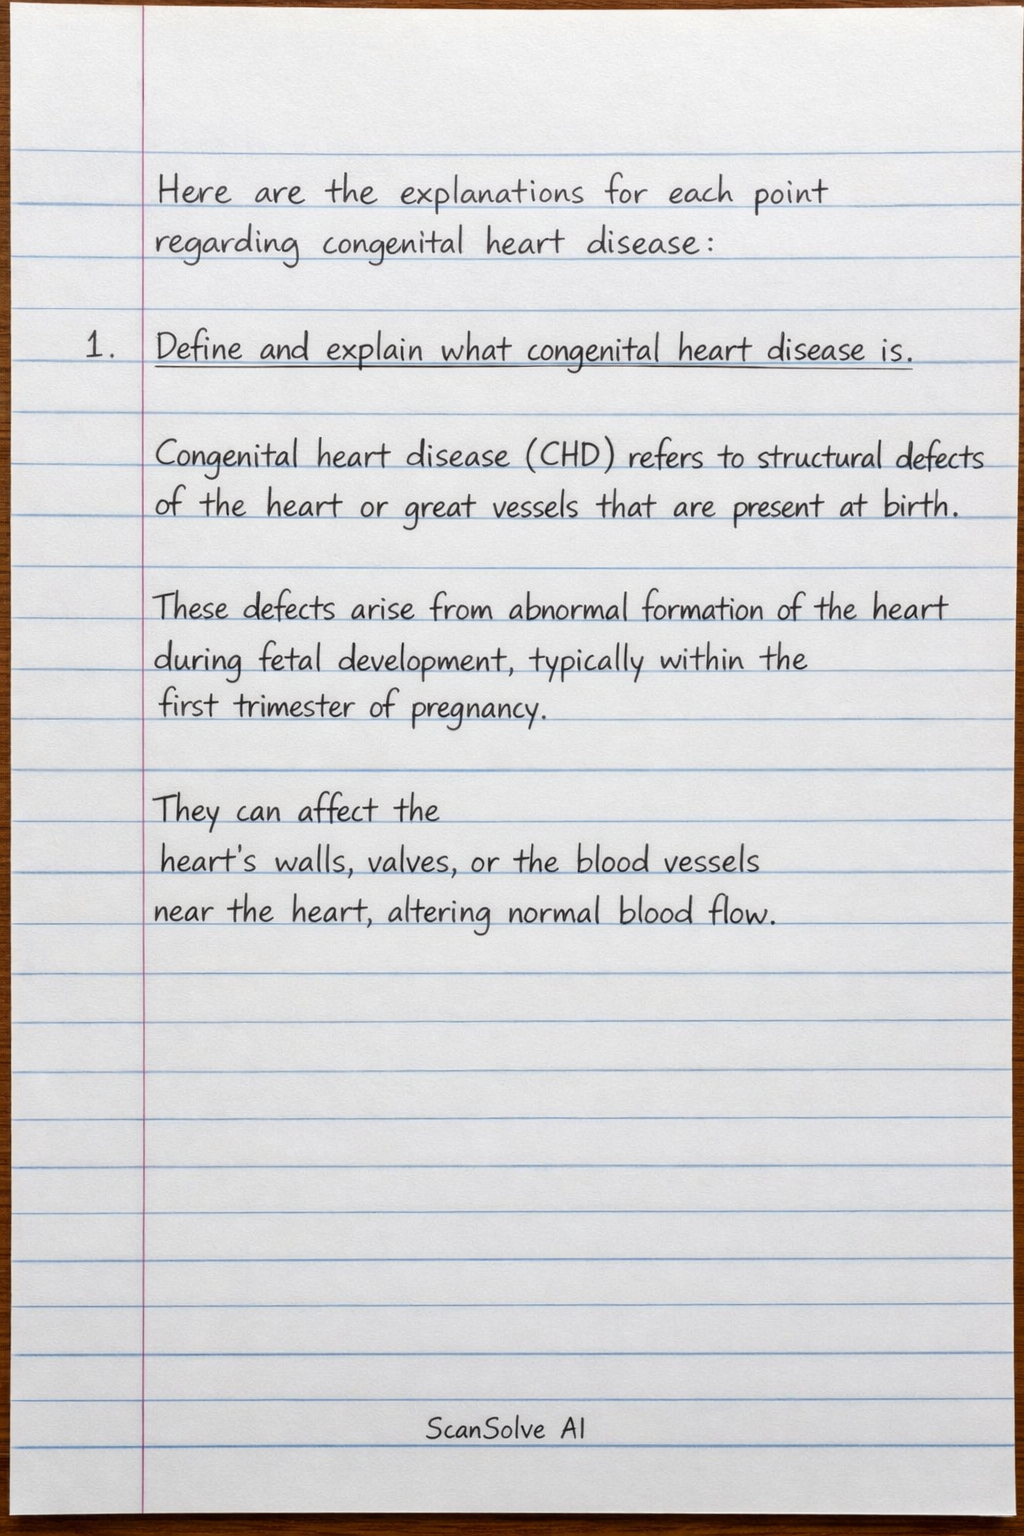 Here are the explanations for each point
regarding congenital heart disease:
1. Define and explain what congenital heart disease is.
Congenital heart disease (CHD) refers to structural defects
of the heart or great vessels that are present at birth.
These defects arise from abnormal formation of the heart
during fetal development, typically within the
first trimester of pregnancy.
They can affect the
heart's walls, valves, or the blood vessels
near the heart, altering normal blood flow.
ScanSolve AI